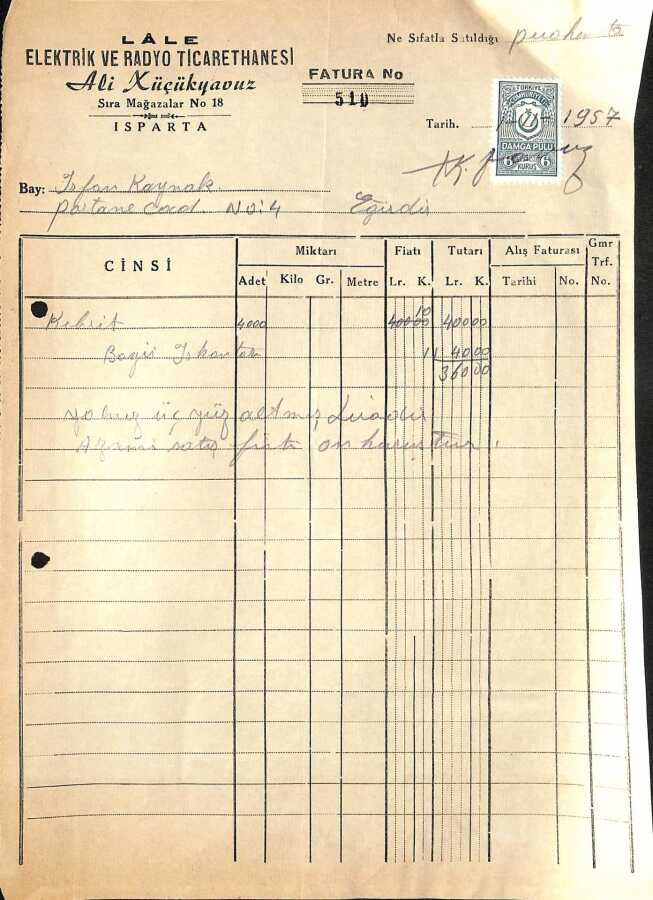 LÂLE
ELEKTRİK VE RADYO TİCARETHANESİ
Ali Küçükyavuz
Sıra Mağazalar No 18
ISPARTA
Ne Sıfatla Satıldığı
FATURA No
510
Tarih. 1957
TÜRKİYE
CUMHURİYETİ
DAMGA PULU
6 6
KURUŞ
Bay: İrfan Kaynak
Postane cad. No:4 Eğirdir
CİNSİ Miktarı Fiatı Tutarı Alış Faturası Gmr Trf. No.
Adet Kilo Gr. Metre Lr. K. Lr. K. Tarihi No.
10
Kibrit 4000 40000 40000
4000
36000
Yalnız üç yüz altmış Liradır.
Azami satış fiatı on kuruştur.